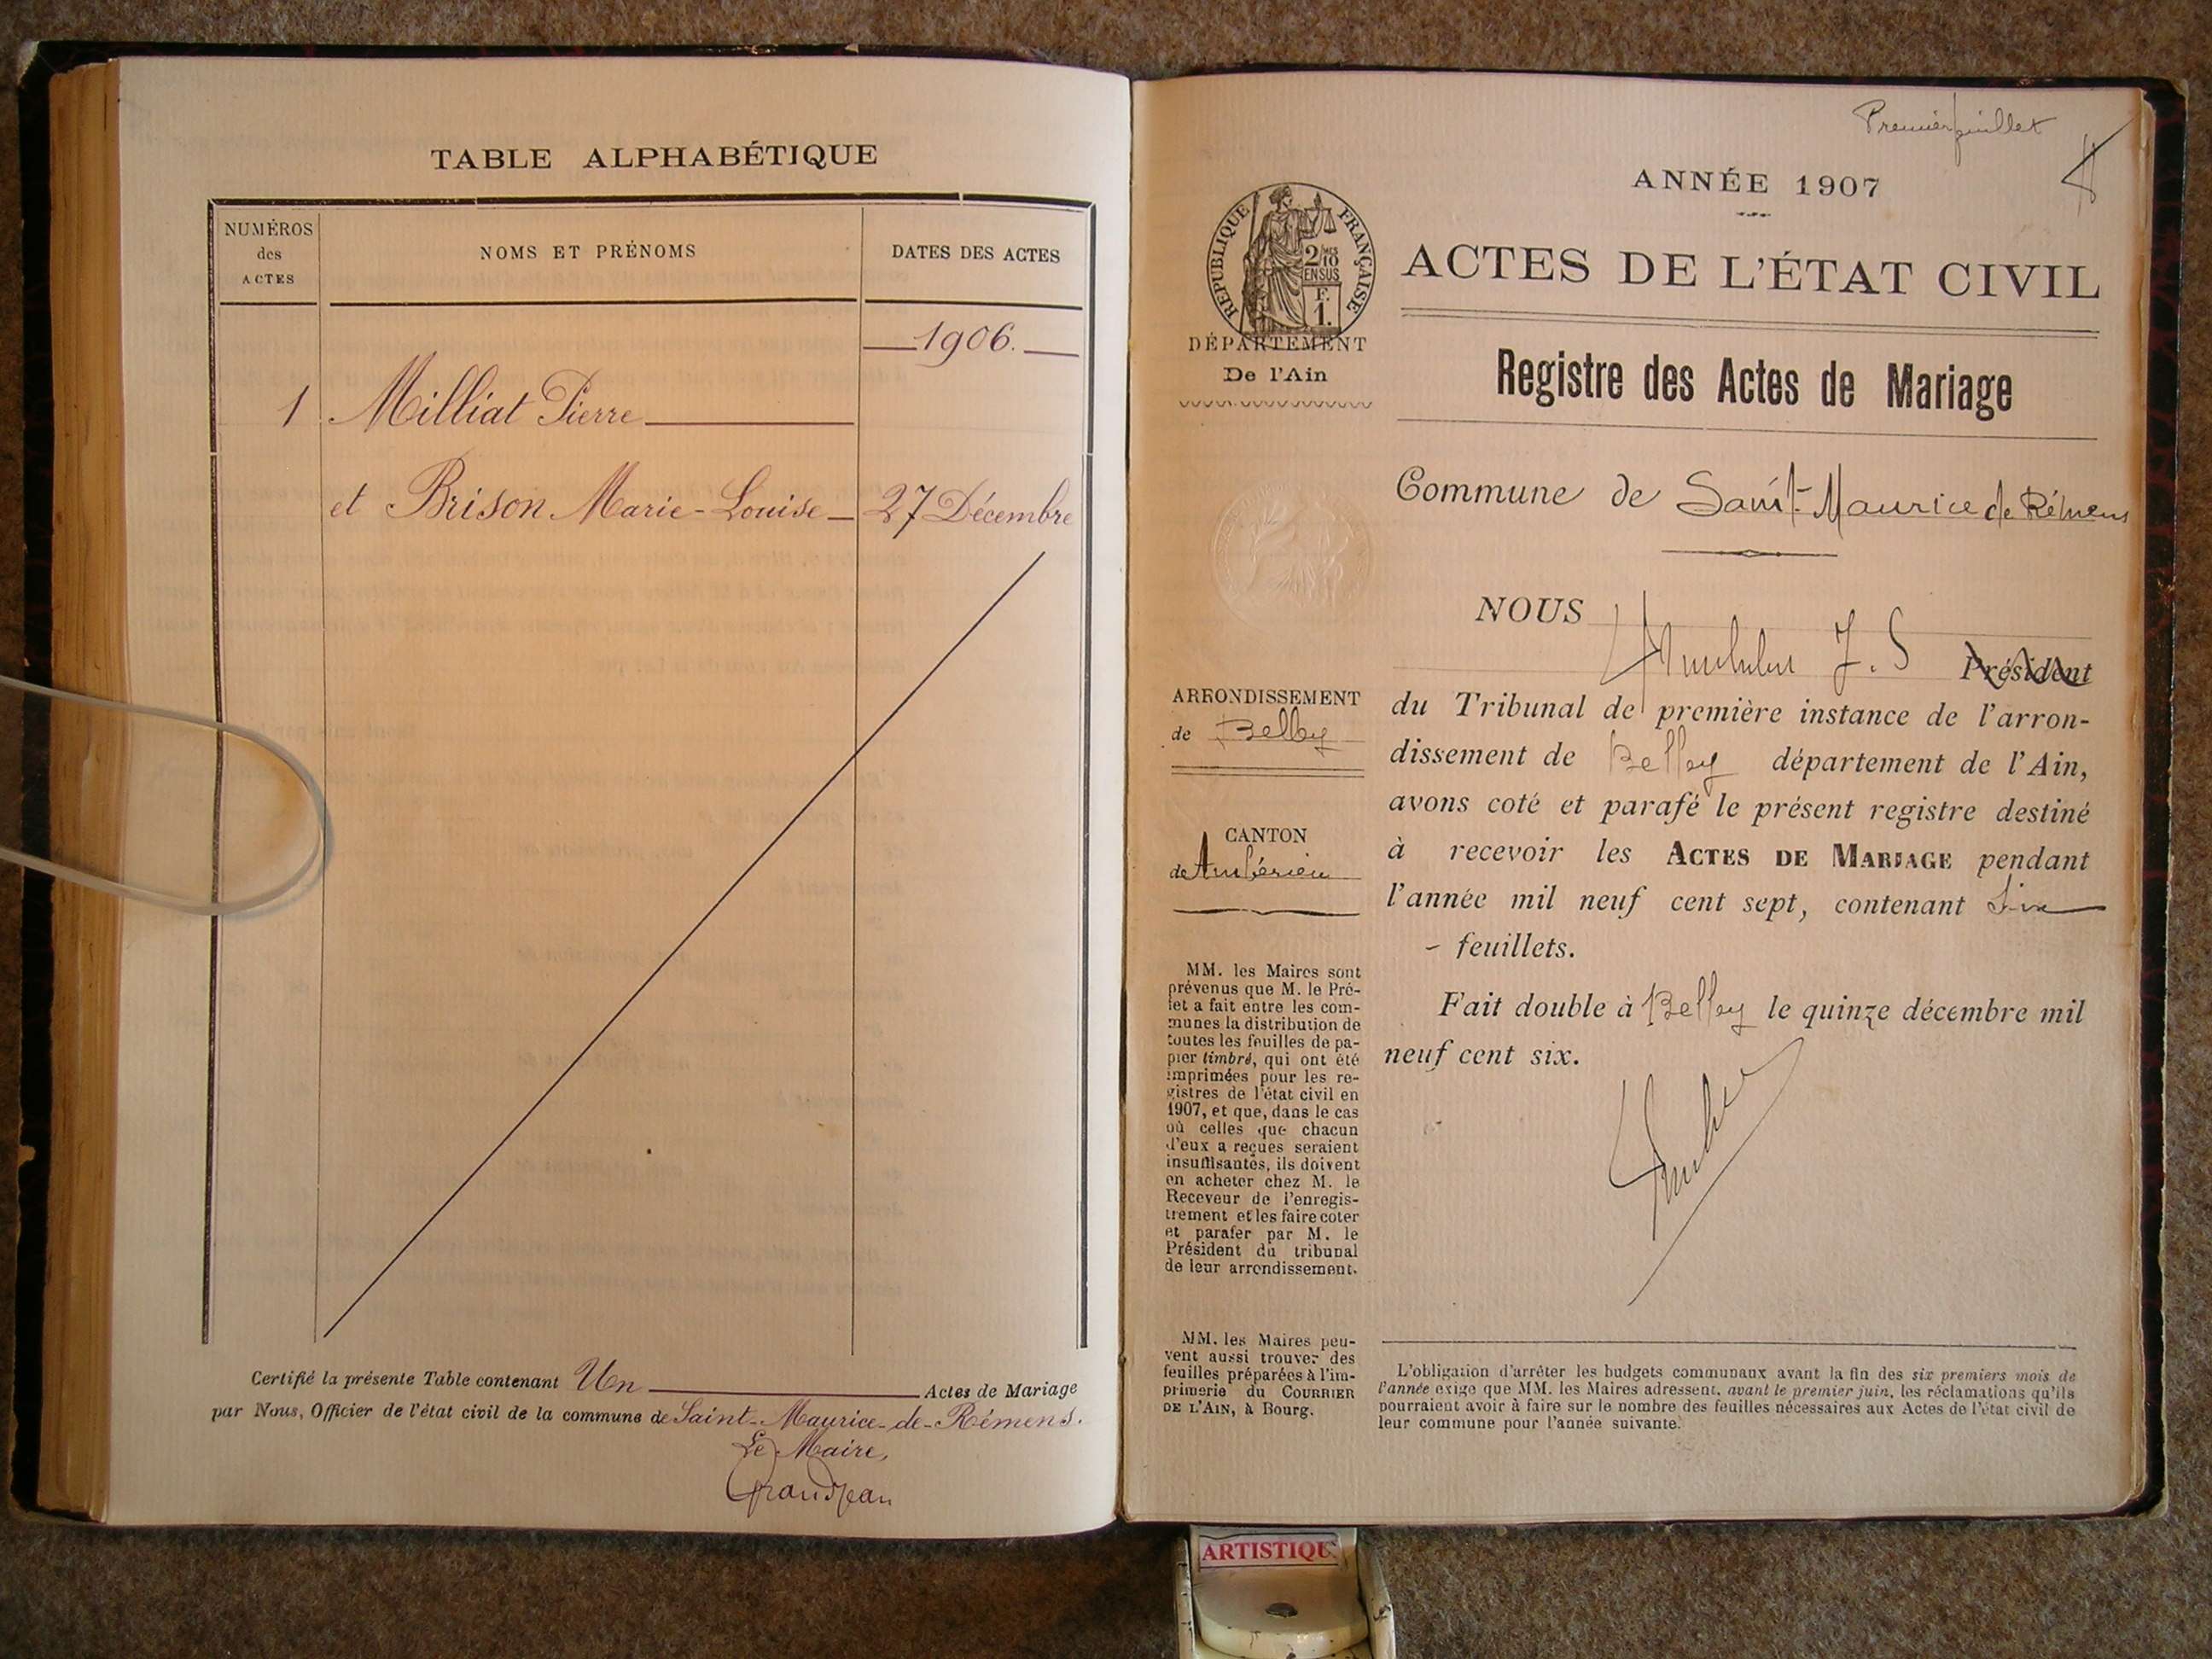 TABLE ALPHABÉTIQUE
NUMÉROS
des
ACTES
NOMS ET PRÉNOMS
DATES DES ACTES
1906.
1 Milliat Pierre
et Brison Marie-Louise 27 Décembre
Certifié la présente Table contenant Un Actes de Mariage
par Nous, Officier de l'état civil de la commune de Saint-Maurice-de-Rémens.
Le Maire,
Grandjean
Premier feuillet
ANNÉE 1907
RÉPUBLIQUE FRANÇAISE
2/10
EN SUS
F.
1.
DÉPARTEMENT
De l'Ain
ACTES DE L'ÉTAT CIVIL
Registre des Actes de Mariage
Commune de Saint-Maurice de Rémens
ARRONDISSEMENT
de Belley
CANTON
de Ambérieu
MM. les Maires sont
prévenus que M. le Pré-
fet a fait entre les com-
munes la distribution de
toutes les feuilles de pa-
pier timbré, qui ont été
imprimées pour les re-
gistres de l'état civil en
1907, et que, dans le cas
où celles que chacun
d'eux a reçues seraient
insuffisantes, ils doivent
en acheter chez M. le
Receveur de l'enregis-
trement et les faire coter
et parafer par M. le
Président du tribunal
de leur arrondissement.
MM. les Maires peu-
vent aussi trouver des
feuilles préparées à l'im-
primerie du COURRIER
DE L'AIN, à Bourg.
NOUS
J. S Président
du Tribunal de première instance de l'arron-
dissement de Belley département de l'Ain,
avons coté et parafé le présent registre destiné
à recevoir les ACTES DE MARIAGE pendant
l'année mil neuf cent sept, contenant Six
- feuillets.
Fait double à Belley le quinze décembre mil
neuf cent six.
L'obligation d'arrêter les budgets communaux avant la fin des six premiers mois de
l'année exige que MM. les Maires adressent, avant le premier juin, les réclamations qu'ils
pourraient avoir à faire sur le nombre des feuilles nécessaires aux Actes de l'état civil de
leur commune pour l'année suivante.
ARTISTIQU